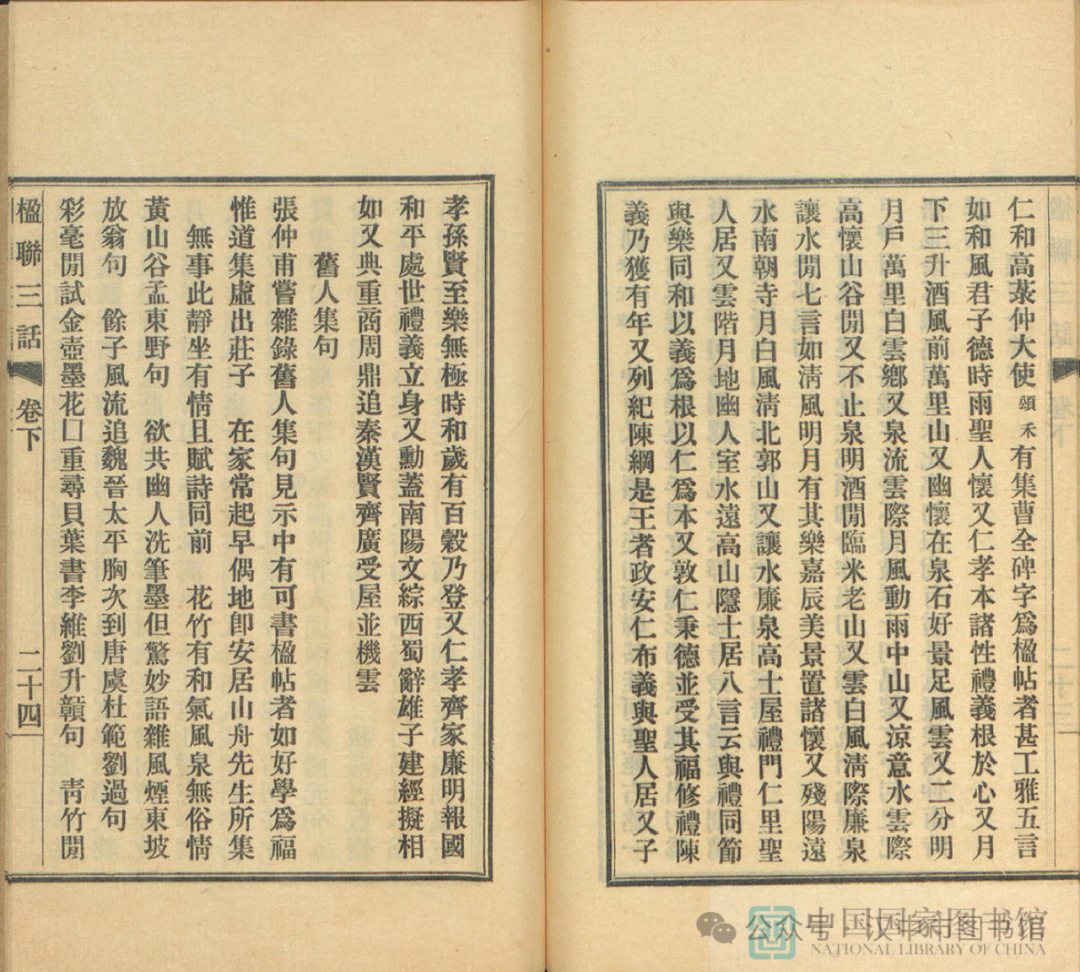 仁和高菉仲大使頌禾有集曹全碑字爲楹帖者甚工雅五言
如和風君子德時雨聖人懷又仁孝本諸性禮義根於心又月
下三升酒風前萬里山又幽懷在泉石好景足風雲又二分明
月戶萬里白雲鄉又泉流雲際月風動雨中山又涼意水雲際
高懷山谷閒又不止泉明酒閒臨米老山又雲白風淸際廉泉
讓水閒七言如淸風明月有其樂嘉辰美景置諸懷又殘陽遠
水南朝寺月白風淸北郭山又讓水廉泉高士屋禮門仁里聖
人居又雲階月地幽人室水遠高山隱士居八言云與禮同節
與樂同和以義爲根以仁爲本又敦仁秉德並受其福修禮陳
義乃獲有年又列紀陳綱是王者政安仁布義與聖人居又子
孝孫賢至樂無極時和歲有百穀乃登又仁孝齊家廉明報國
和平處世禮義立身又勳蓋南陽文綜西蜀辭雄子建經擬相
如又典重商周鼎追秦漢賢齊廣受屋並機雲
舊人集句
張仲甫嘗雜錄舊人集句見示中有可書楹帖者如好學爲福
惟道集虛出莊子　在家常起早偶地卽安居山舟先生所集
無事此靜坐有情且賦詩同前　花竹有和氣風泉無俗情
黃山谷孟東野句　欲共幽人洗筆墨但驚妙語雜風煙東坡
放翁句　餘子風流追魏晉太平胸次到唐虞杜範劉過句
彩毫閒試金壺墨花口重尋貝葉書李維劉升贛句　靑竹閒
楹聯三話　卷下　二十四
公众号·汉中市图书馆
中国国家图书馆
NATIONAL LIBRARY OF CHINA